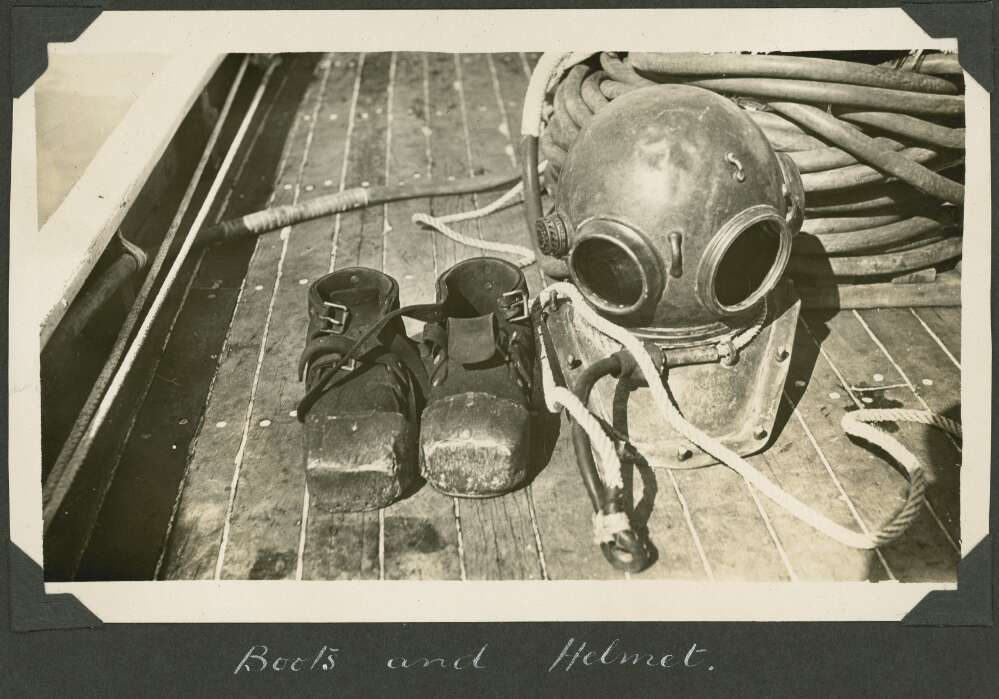 Boots and Helmet.